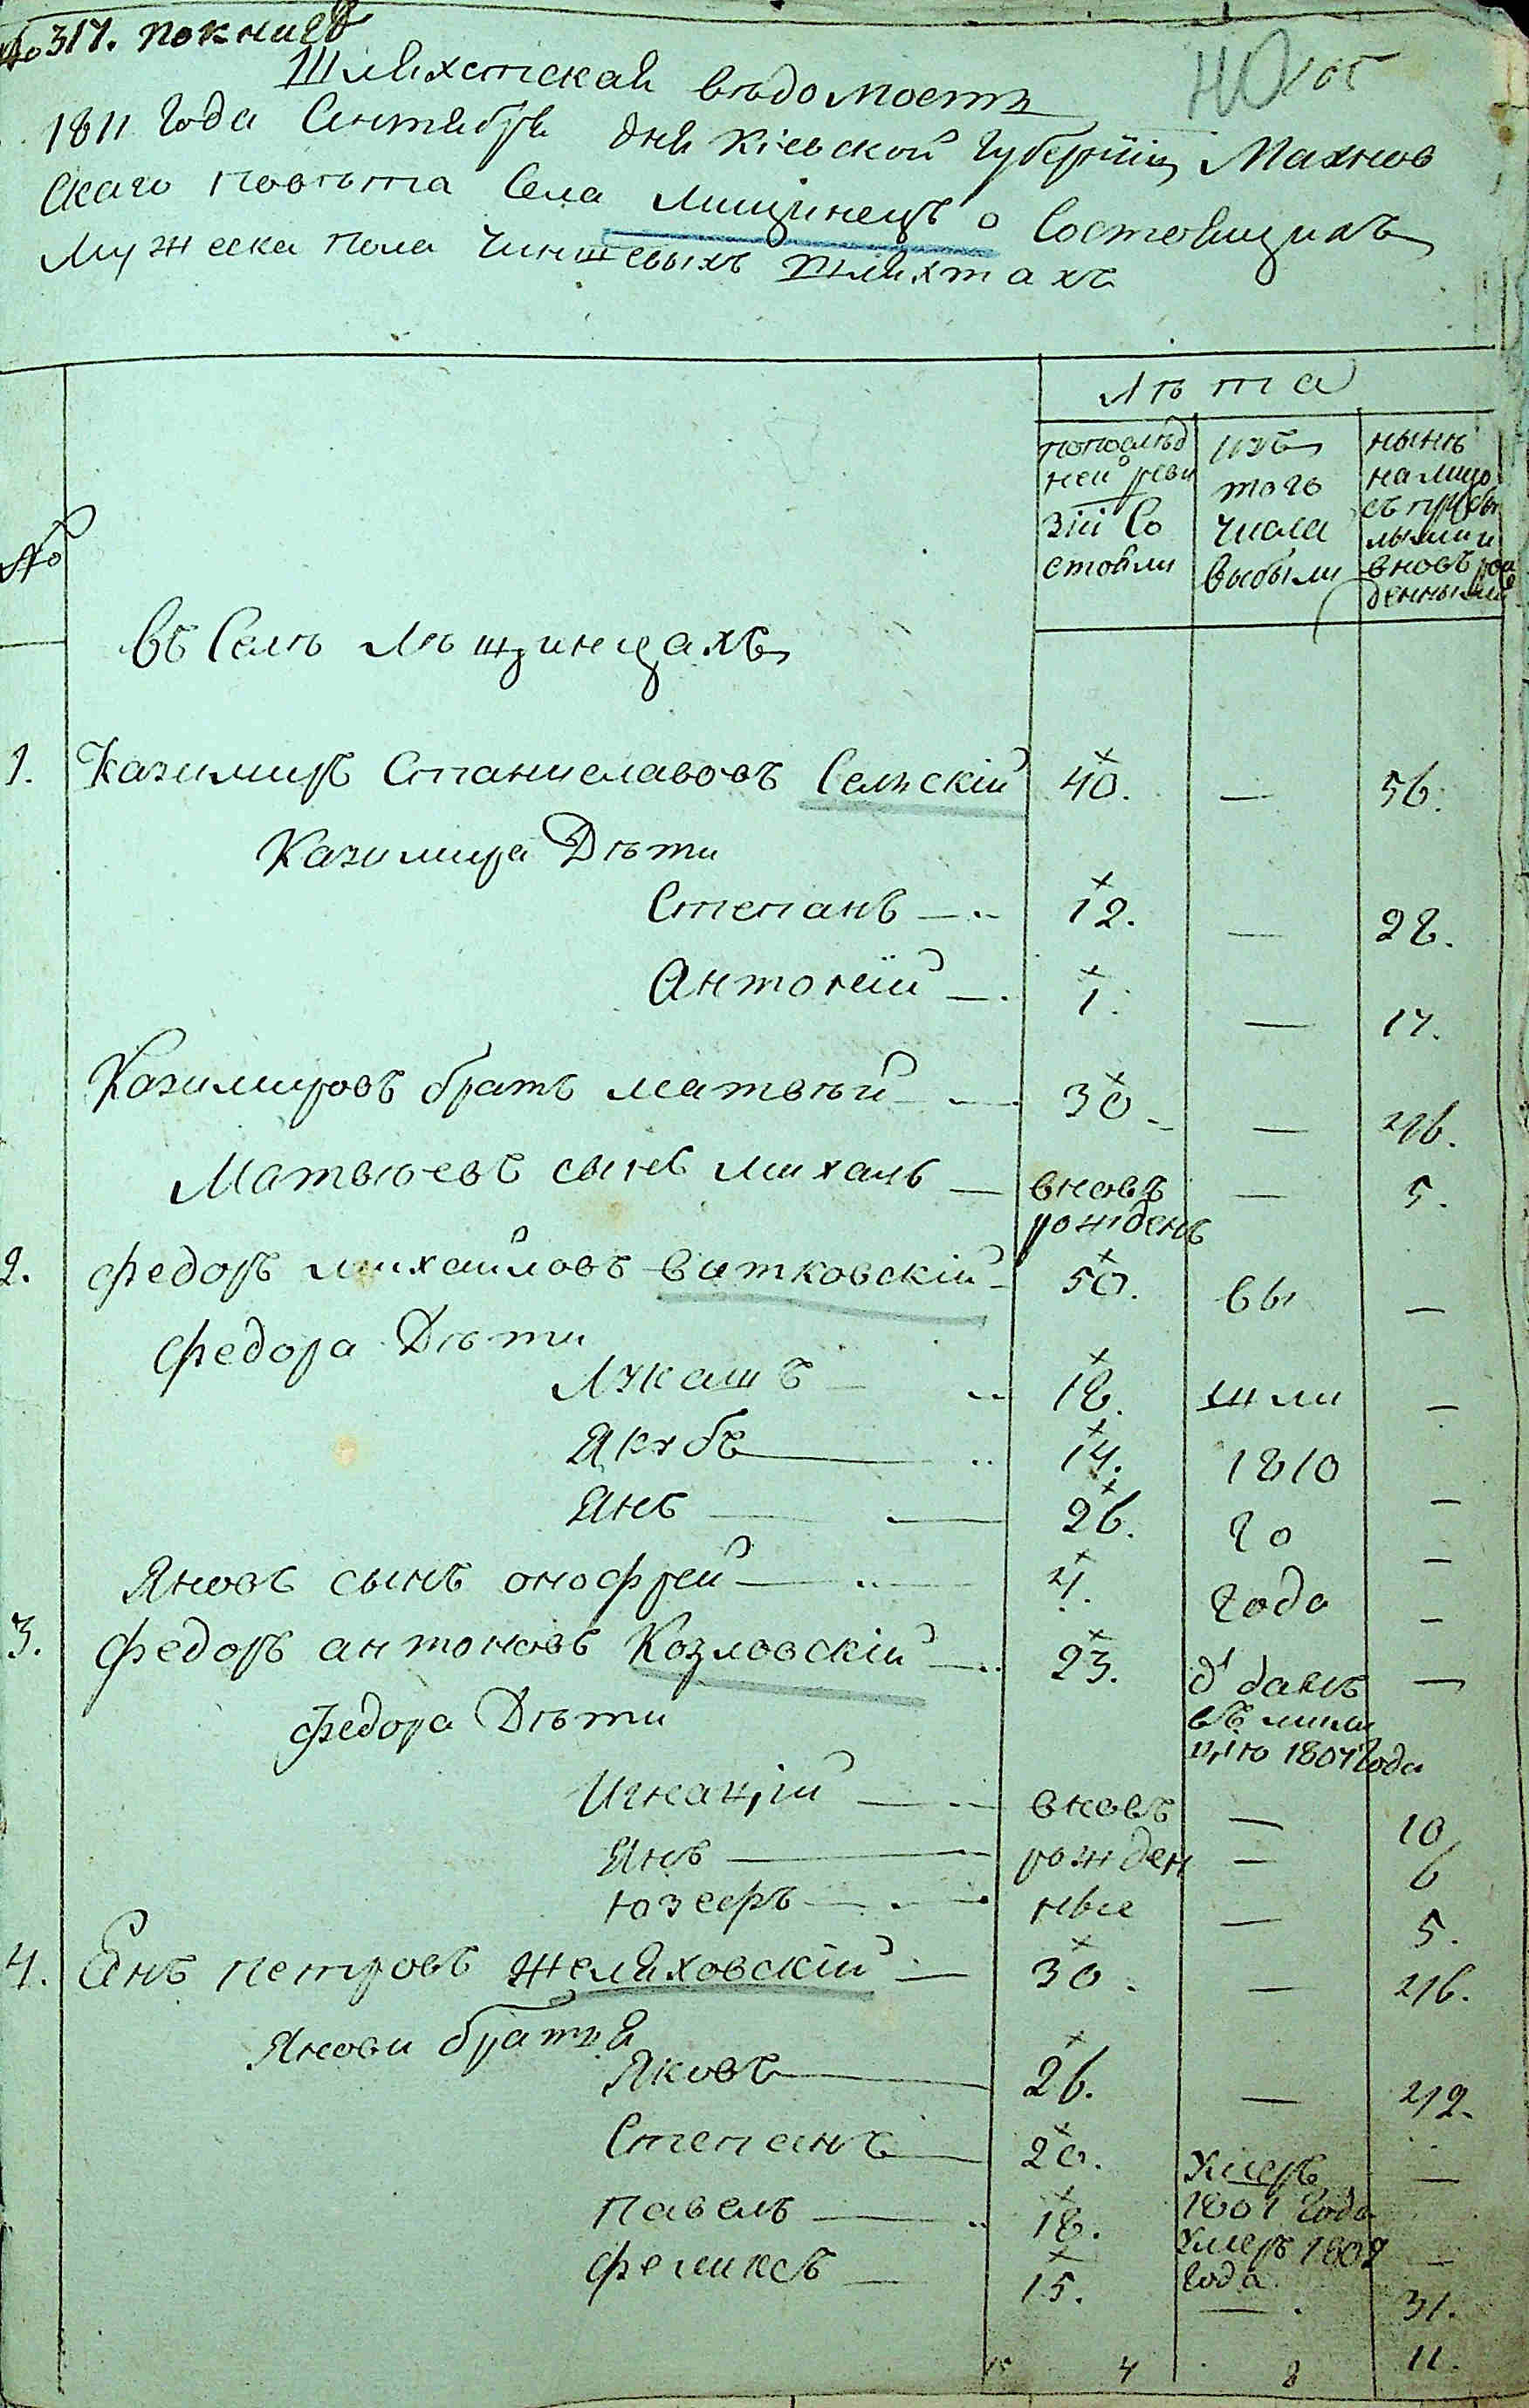 № 317. по книге
105
Шляхетская вѣдомость
1811 года Сентября дня Кіевской Губерніи Махнов
скаго повѣта Села Лищинецъ о Состоящихъ
Мужеска пола чиншевыхъ шляхтахъ
№
Лѣта
попослѣд
ней реви
зіи Со
стояли
изъ
того
числа
выбыли
нынѣ
на лицо
съ прибы
лыми и
вновь рож
денными
Въ Селѣ Лѣщинцахъ
1. Казимиръ Станиславовъ Сельскій 40. — 56.
Казимира Дѣти
Степанъ — 12. — 28.
Антоній — 1. — 17.
Казимировъ братъ Матвѣй — 30 — 46.
Матвѣевъ сынъ Михалъ — вновь рожденъ — 5.
2. Федоръ Михайловъ Витковскій 50. вы —
Федора Дѣти
Лукашъ — 18. шли —
Якубъ — 14. 1810 —
Янъ — 26. го —
Яновъ сынъ Онофрей — 4. года —
3. Федоръ Антоновъ Козловскій — 23. Отданъ —
въ мили
цію 1807 года
Федора Дѣти
Игнацій — вновь — 10
Янъ — рожден — 6
Юзефъ — ные — 5.
4. Янъ Петровъ Желяховскій — 30. — 46.
Янови братья
Яковъ — 26. — 42.
Степанъ — 20. Умеръ —
1801 года
Павелъ — 18. Умеръ 1802 —
года
Феликсъ — 15. — 31.
15 4 8 11.